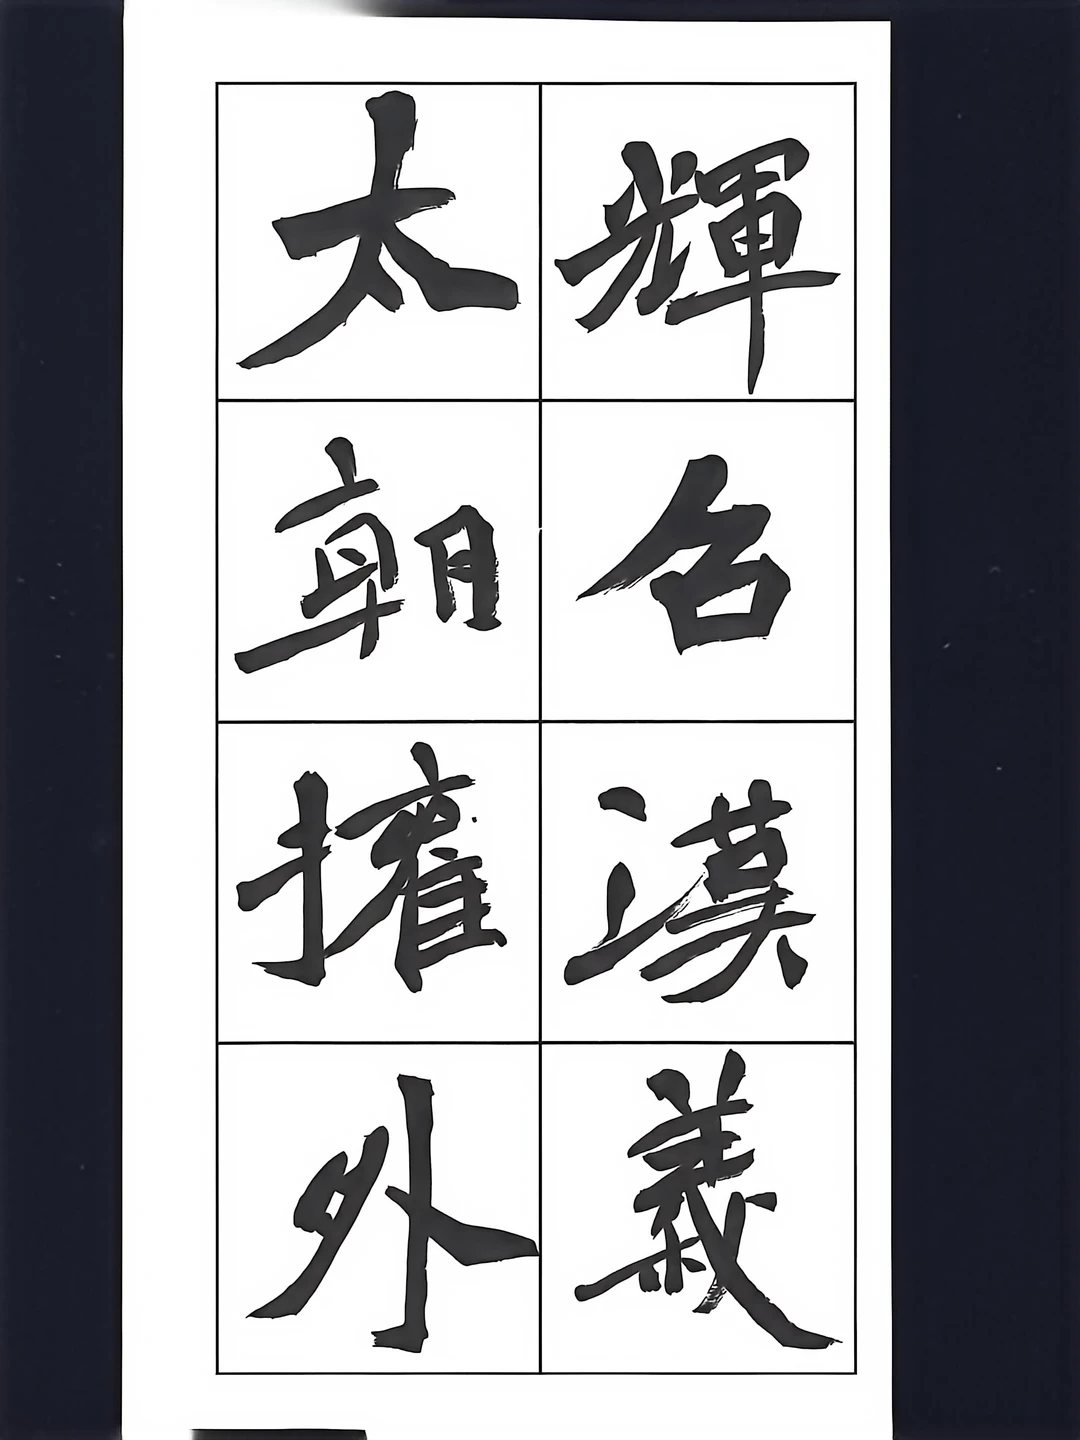 輝名漢義
太朝擁外